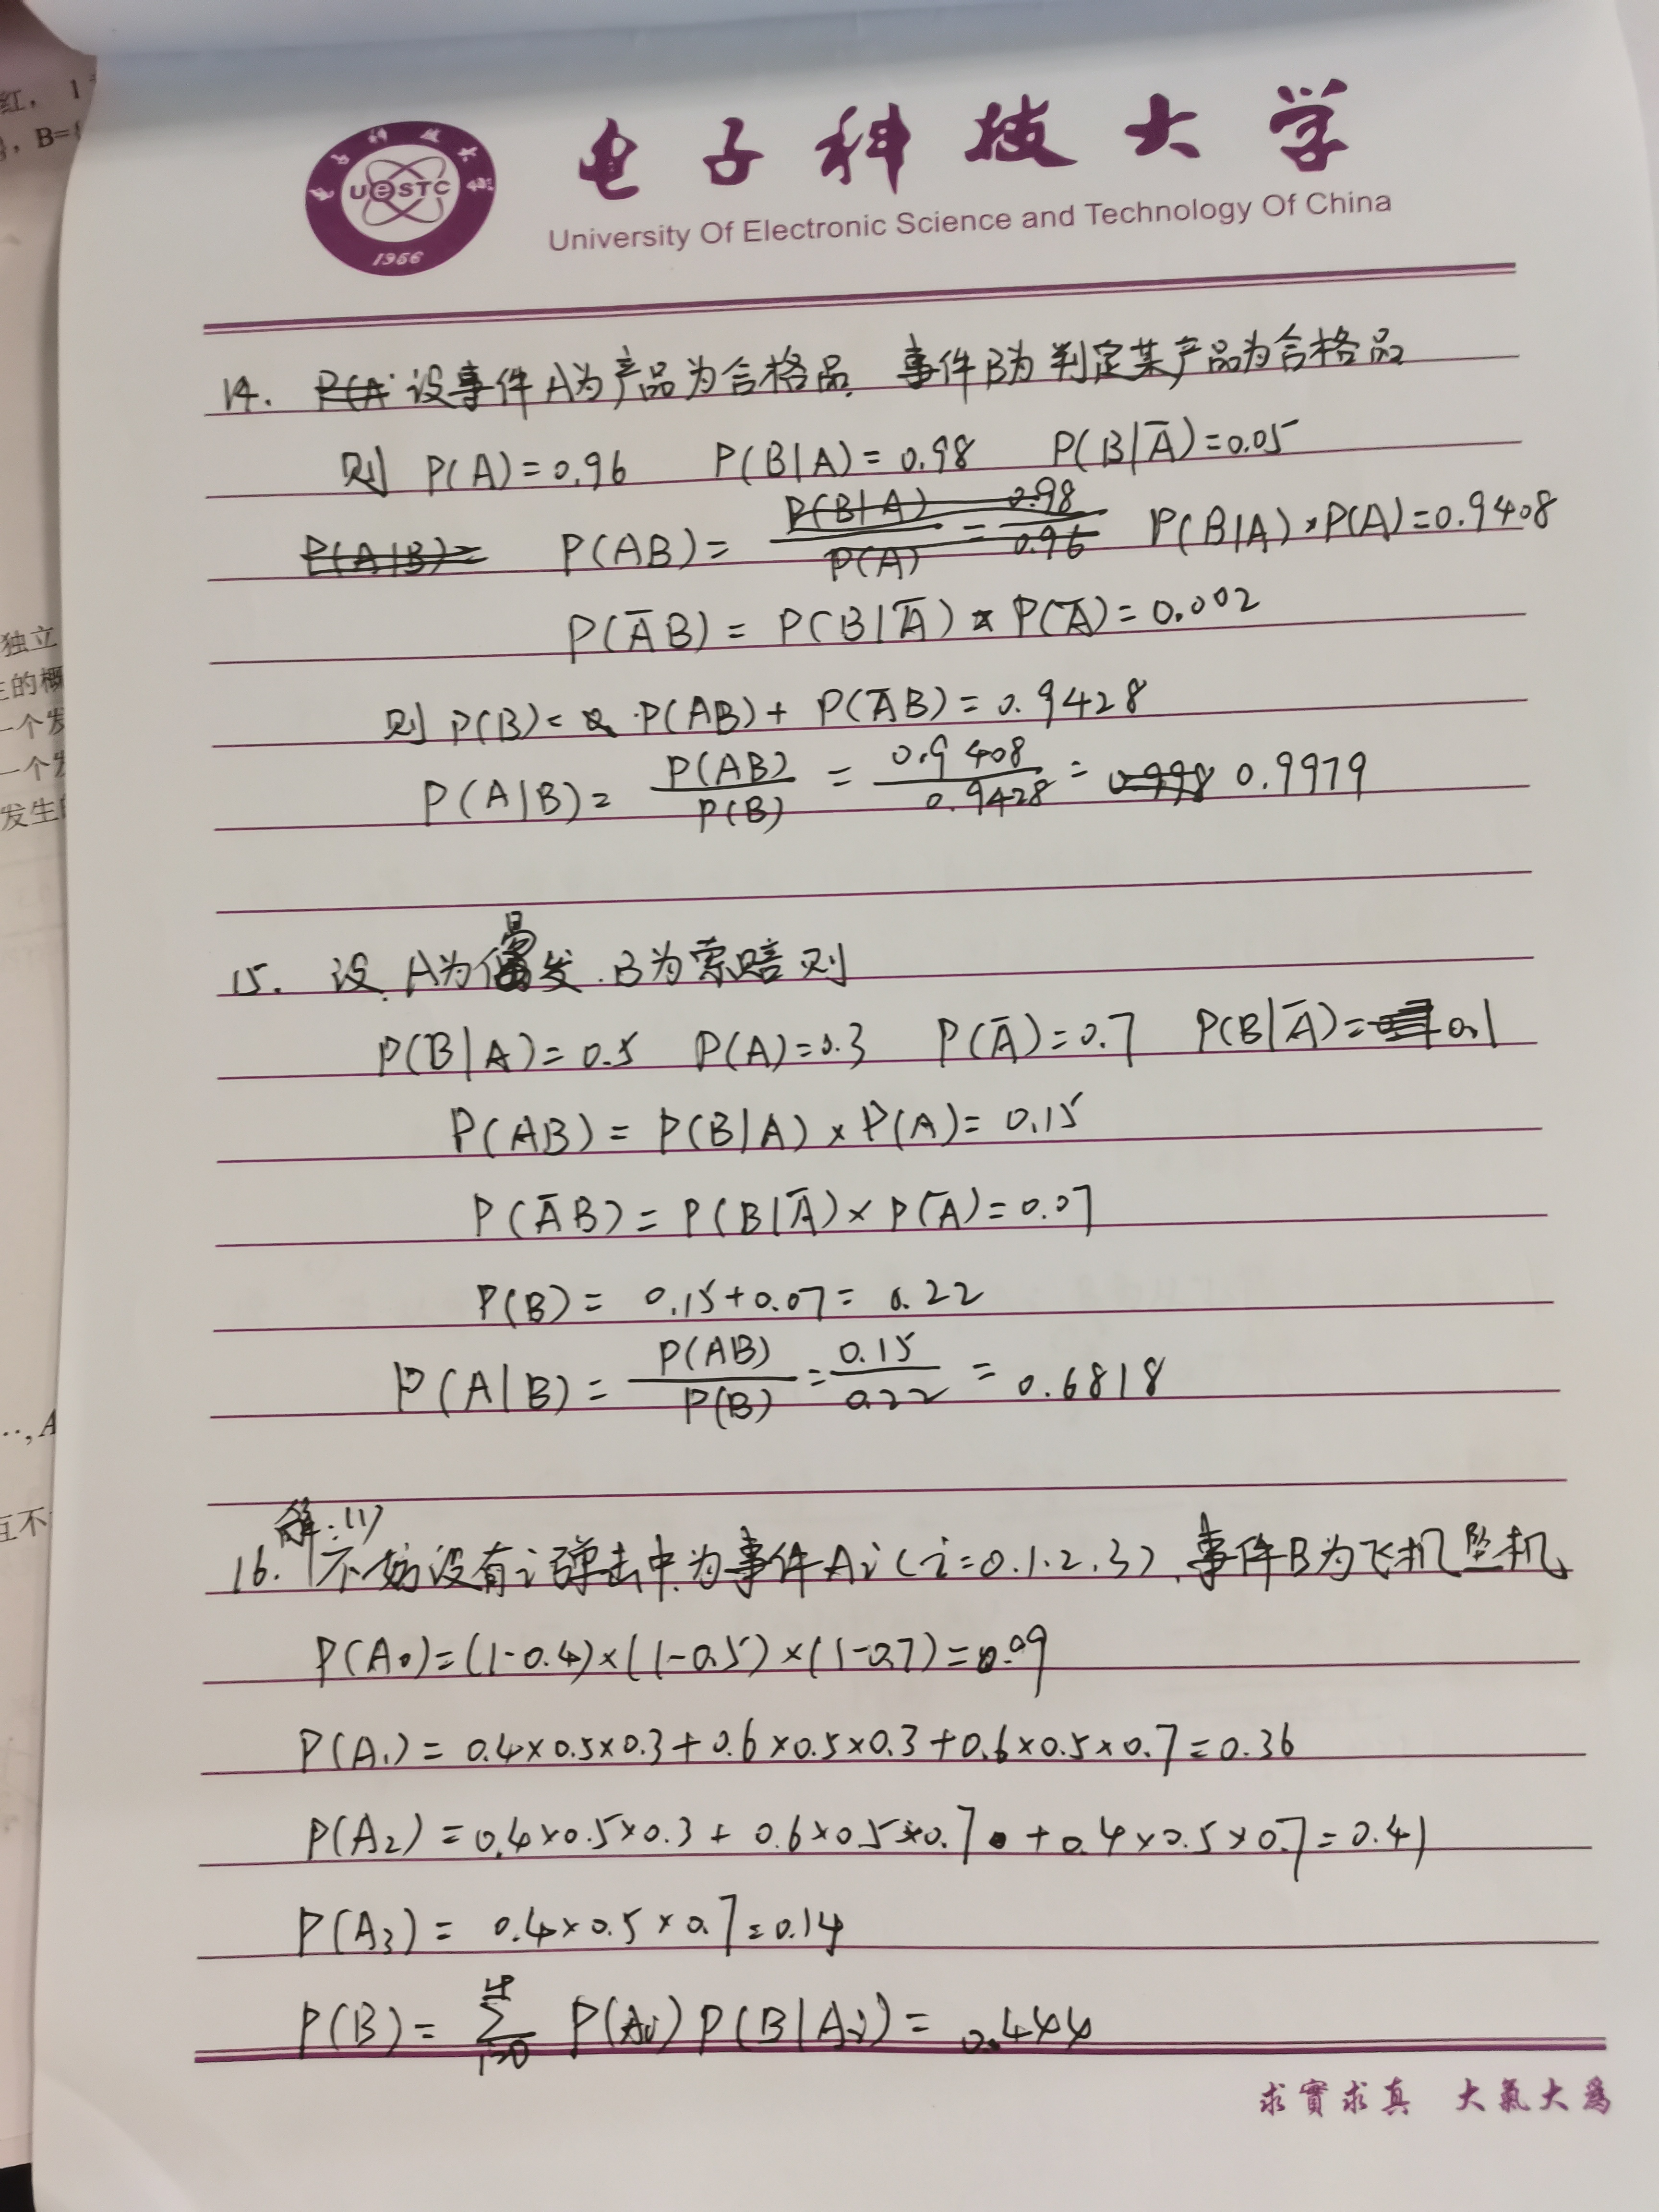 红, 1
, B=
独立
生的概
一个发
一个发
发生
…, A
互不
UESTC
1956
电子科技大学
University Of Electronic Science and Technology Of China
14. P(A 设事件A为产品为合格品. 事件B为判定某产品为合格品
则 P(A)=0.96 P(B|A)=0.98 P(B|Ā)=0.05
P(A|B)= P(AB)= P(B|A)/P(A) = 0.98/0.96 P(B|A)×P(A)=0.9408
P(ĀB)= P(B|Ā)×P(Ā)=0.002
则 P(B)= P(AB)+P(ĀB)=0.9428
P(A|B)= P(AB)/P(B) = 0.9408/0.9428 = 0.998 0.9979
15. 设 A为偶发. B为索赔则
P(B|A)=0.5 P(A)=0.3 P(Ā)=0.7 P(B|Ā)=0.1
P(AB)=P(B|A)×P(A)=0.15
P(ĀB)=P(B|Ā)×P(Ā)=0.07
P(B)= 0.15+0.07= 0.22
P(A|B)= P(AB)/P(B) = 0.15/0.22 = 0.6818
解:(1)
16. 不妨设有i弹击中为事件Ai(i=0.1.2.3), 事件B为飞机坠机
P(A₀)=(1-0.4)×(1-0.5)×(1-0.7)=0.09
P(A₁)=0.4×0.5×0.3+0.6×0.5×0.3+0.6×0.5×0.7=0.36
P(A₂)=0.4×0.5×0.3+0.6×0.5×0.7+0.4×0.5×0.7=0.41
P(A₃)= 0.4×0.5×0.7=0.14
P(B)= 4 Σ i=0 P(Ai)P(B|Ai)= 0.444
求實求真 大氣大為